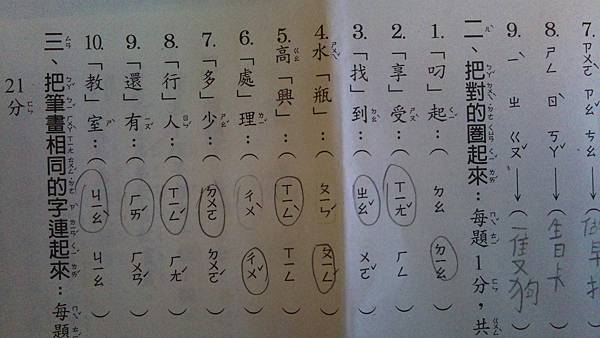 8. ㄕㄥ ㄖˋ ㄎㄚˇ →（生日卡
9. ㄧˋ ㄓ ㄍㄡˇ →（一隻狗）
二、把對的圈起來：每題1分，共
1.「叼」起：（ ㄉㄠ ㄉㄧㄠ ）
2.「享」受：（ ㄒㄧㄤˇ ㄏㄥ ）
3.「找」到：（ ㄓㄠˇ ㄨㄛˇ ）
4. 水「瓶」：（ ㄆㄧㄣˊ ㄆㄧㄥˊ ）
5. 高「興」：（ ㄒㄧㄥˋ ㄒㄧㄥ ）
6.「處」理：（ ㄔㄨˋ ㄔㄨˇ ）
7.「多」少：（ ㄉㄨㄛ ㄉㄨㄛˇ ）
8.「行」人：（ ㄒㄧㄥˊ ㄏㄤˊ ）
9.「還」有：（ ㄏㄞˊ ㄏㄨㄢˊ ）
10.「教」室：（ ㄐㄧㄠˋ ㄐㄧㄠ ）
三、把筆畫相同的字連起來：每題
21分